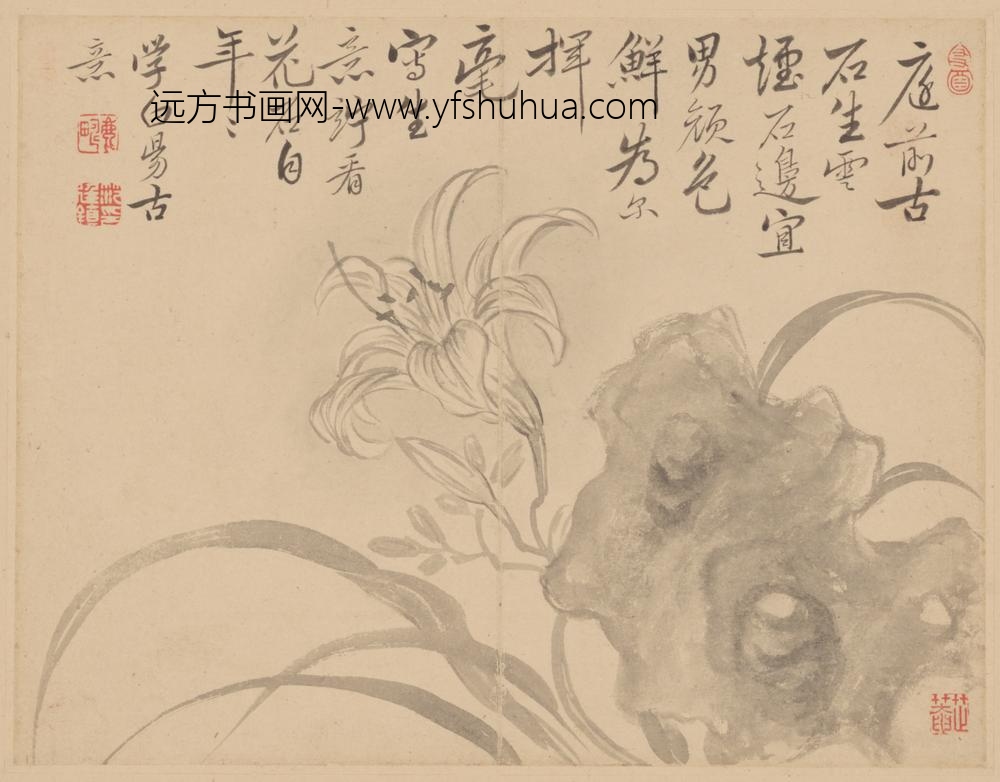 庭前古
石生雲
煙石邊宜
男顔色
鮮為尔
揮
毫
寫生
意
看
花
自
年
学
易古
意
远方书画网-www.yfshuhua.com